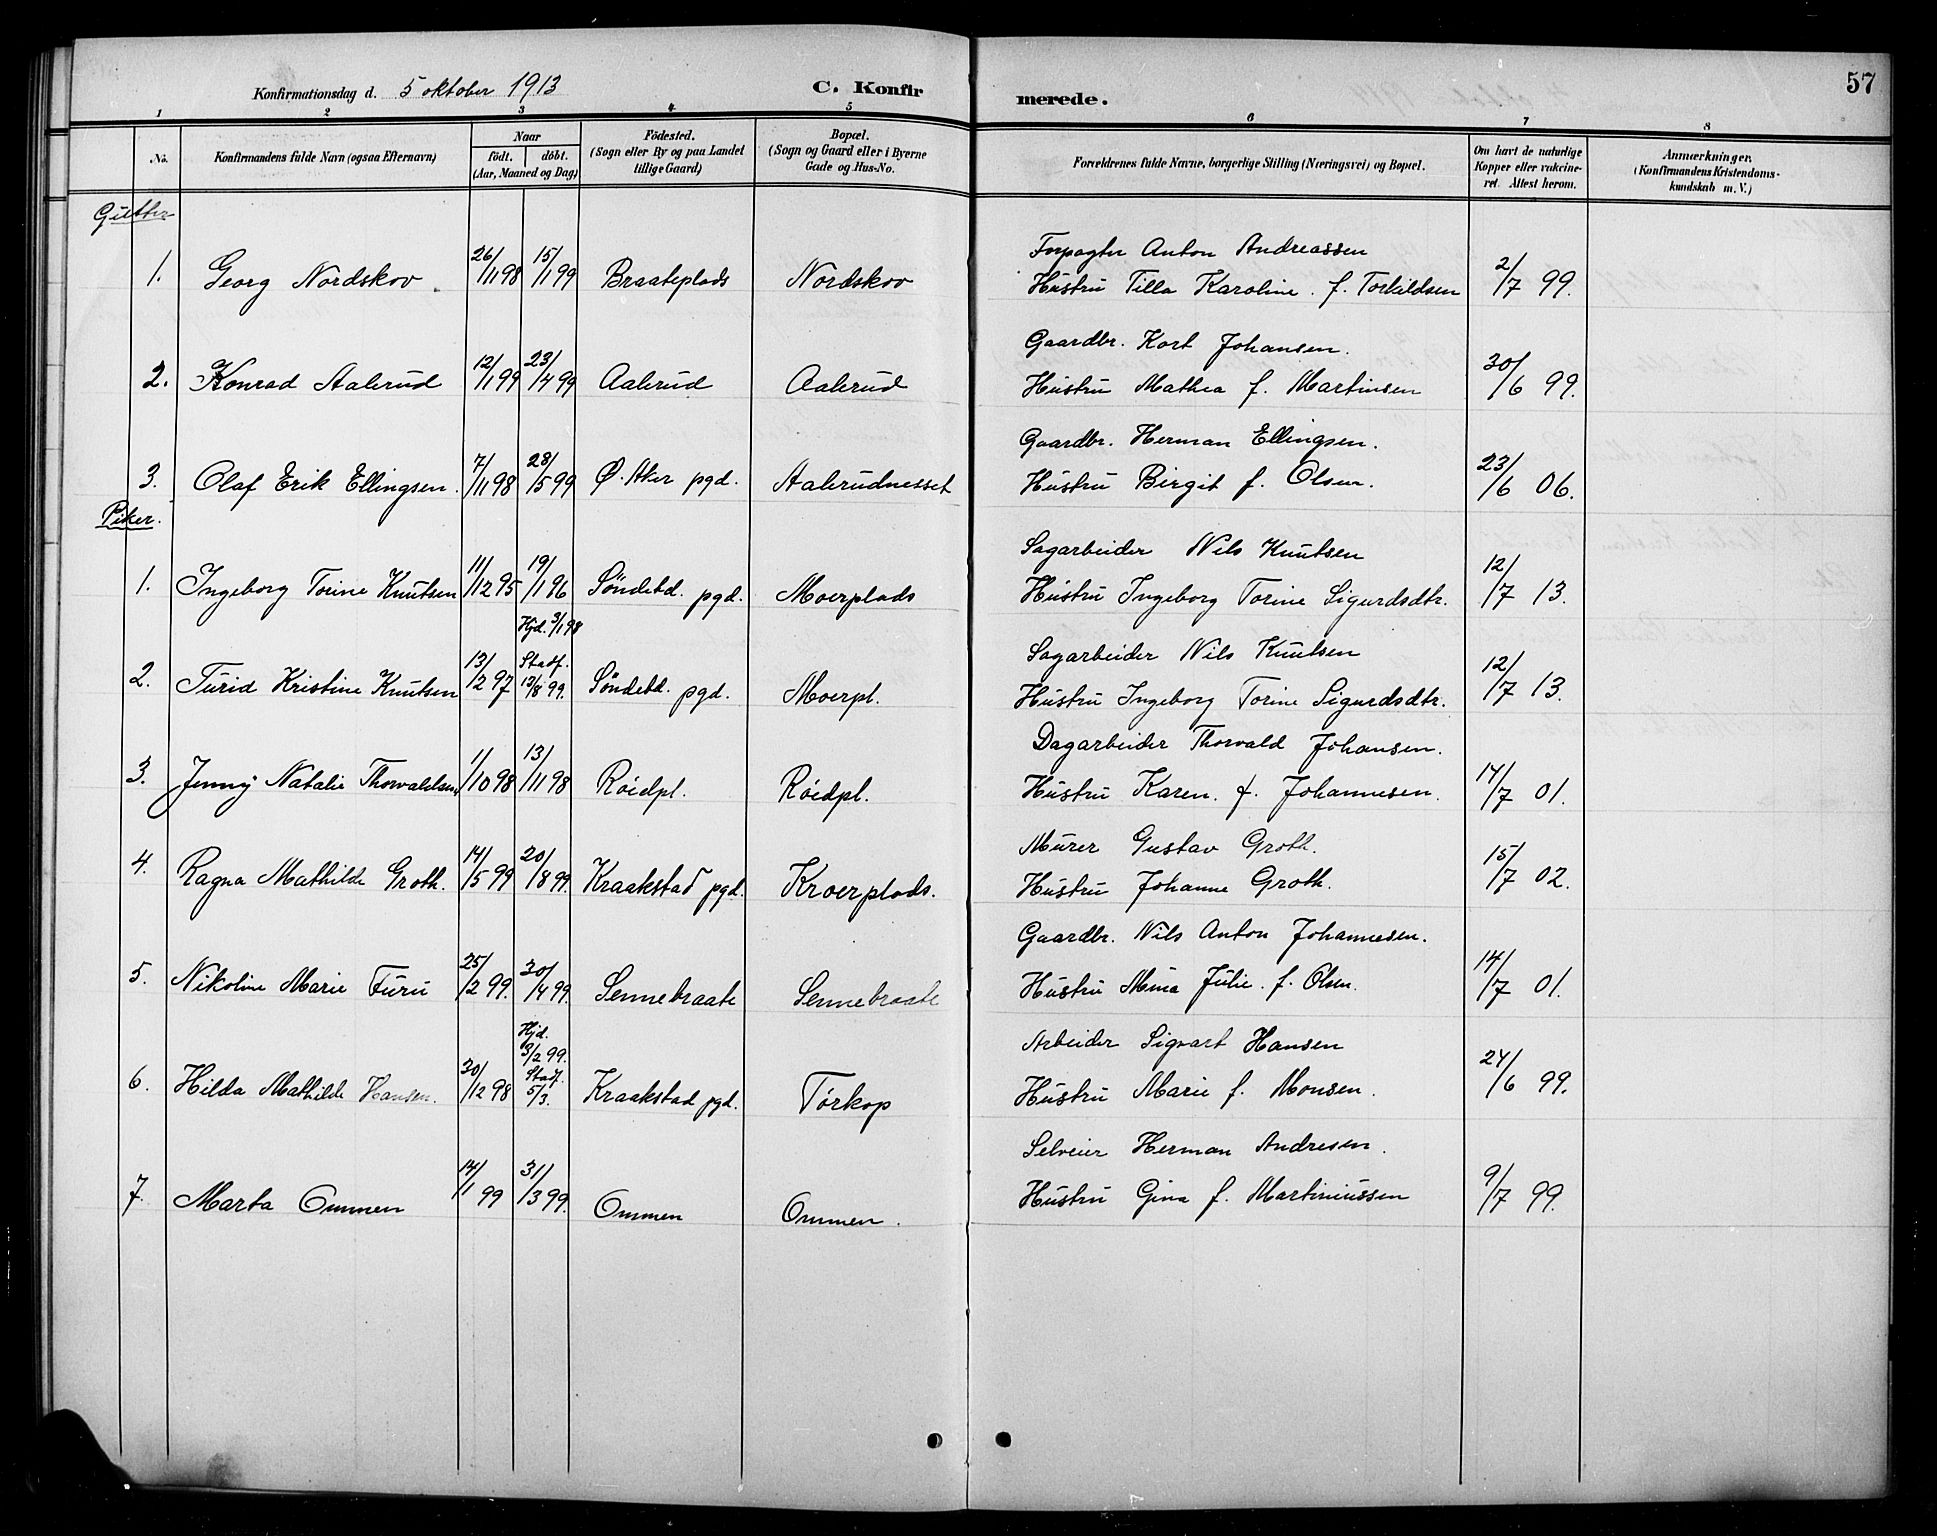 57
Konfirmationsdag d. 5 oktober 1913 C. Konfirmerede.
1 2 3 4 5 6 7 8
No. Konfirmandens fulde Navn (ogsaa Efternavn) Naar födt. döbt. (Aar, Maaned og Dag) Födested. (Sogn eller By og paa Landet tillige Gaard) Bopæl. (Sogn og Gaard eller i Byerne Gade og Hus-No. Forældrenes fulde Navne, borgerlige Stilling (Næringsvei) og Bopæl. Om havt de naturlige Kopper eller vakcineret. Attest herom. Anmærkninger. (Konfirmandens Kristendomskundskab m. V.)
Gutter
Forpagter Anton Andreassen
1. Georg Nordskov. 26/11 98 15/1 99 Braateplads Nordskov Hustru Tilla Karoline. f. Torkildsen 2/7 99.
Gaardbr. Kort Johansen.
2. Konrad Aalerud 12/1 99 23/4 99 Aalerud Aalerud Hustru Mathea f. Martinsen 30/6 99.
Gaardbr. Herman Ellingsen.
3. Olaf Erik Ellingsen. 7/11 98 28/5 99 Ø. Aker pgd. Aalerudnesset Hustru Birgit f. Olsen. 23/6 06.
Piker.
Sagarbeider Nils Knutsen
1. Ingeborg Torine Knutsen 11/12 95 19/1 96 Söndeld. pgd. Moerplads Hustru Ingeborg Torine Sigurdsdtr. 12/7 13.
Sagarbeider Nils Knutsen
2. Turid Kristine Knutsen 13/2 97 Hjd. 3/1 98 Stadf. 13/8 99. Söndeld. pgd. Moerpl. Hustru Ingeborg Torine Sigurdsdtr. 12/7 13.
Dagarbeider Thorvald Johansen.
3. Jenny Natalie Thorvaldsen 1/10 98 13/11 98 Röidpl. Röidpl. Hustru Karen. f. Johannesen. 14/7 01.
Murer Gustav Groth.
4. Ragna Mathilde Groth. 14/5 99 20/8 99. Kraakstad pgd. Kroerplads. Hustru Johanne Groth. 15/7 02.
Gaardbr. Nils Anton Johannesen.
5. Nikoline Marie Furu 25/2 99. 30/4 99. Sennebraate Sennebraate Hustru Mina Julie. f. Olsen. 14/7 01.
Arbeider Sigvart Hansen
6. Hilda Mathilde Hansen. 30/12 98 Hjd. 3/2 99. Stadf. 5/3. Kraakstad pgd. Törkop Hustru Marie f. Monsen. 24/6 99.
Selveier Herman Andresen.
7. Marta Ommen 14/1 99 31/3 99. Ommen Ommen. Hustru Gina f. Martiniussen 9/7 99.